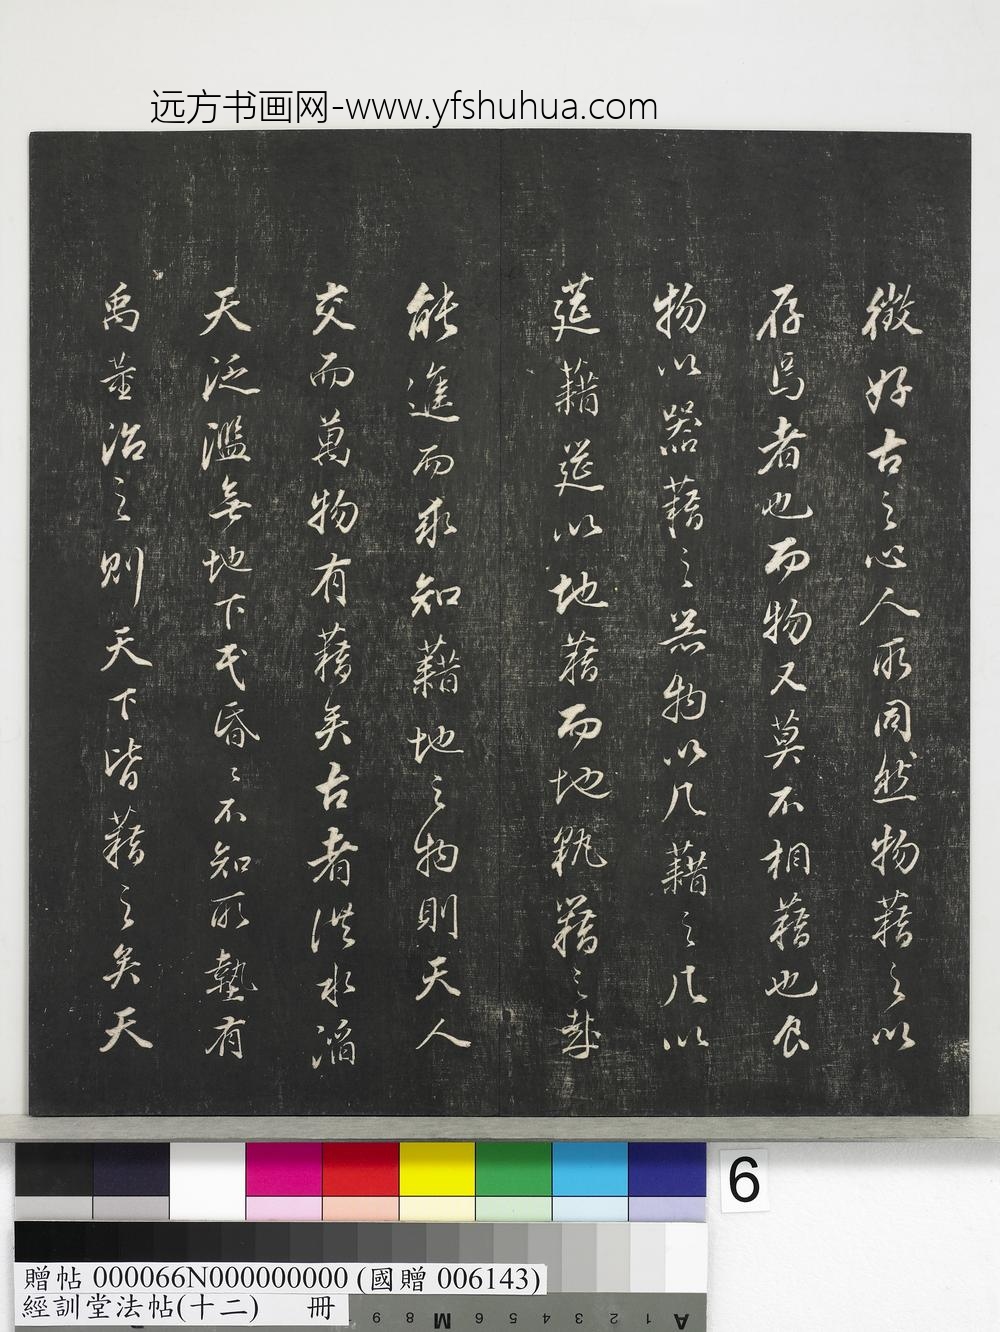 远方书画网-www.yfshuhua.com
微好古之心人所同然物藉之以
存焉者也而物又莫不相藉也食
物以器藉之器物以几藉之几以
筵藉筵以地藉而地孰藉之孰
能進而求知藉地之物則天人
交而萬物有藉矣古者洪水滔
天泛濫無地下民昏〻不知所墊有
禹荃治之則天下皆藉之矣天
6
贈帖 000066N000000000 (國贈 006143)
經訓堂法帖(十二) 冊
A 1 2 3 4 5 6 M 8 9